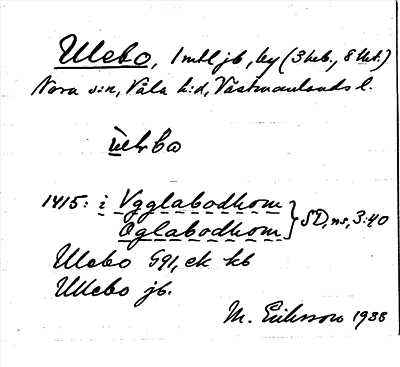 Ulebo, 1 mtl jb, by (3 heb., 8 lht.)
Nora s:n, Våla h:d, Västmanlands l.
1415: i Vgglabodhom
Oglabodhom } SD, ns, 3:40
Ulebo GS1, ek kb
Ullebo jb.
M. Eriksson 1938